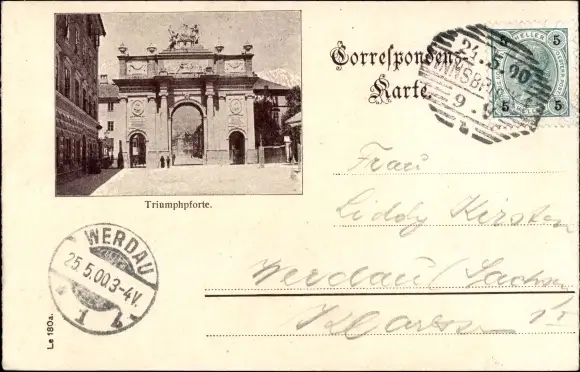 Correspondenz-
Karte.
INNSBRUCK
24.5.00
9
HELLER
5 5
5 5
Triumphpforte.
WERDAU
25.5.00.3-4V.
1
Frau
Liddy Kirsten
Werdau/Sachsen
Le 180a.